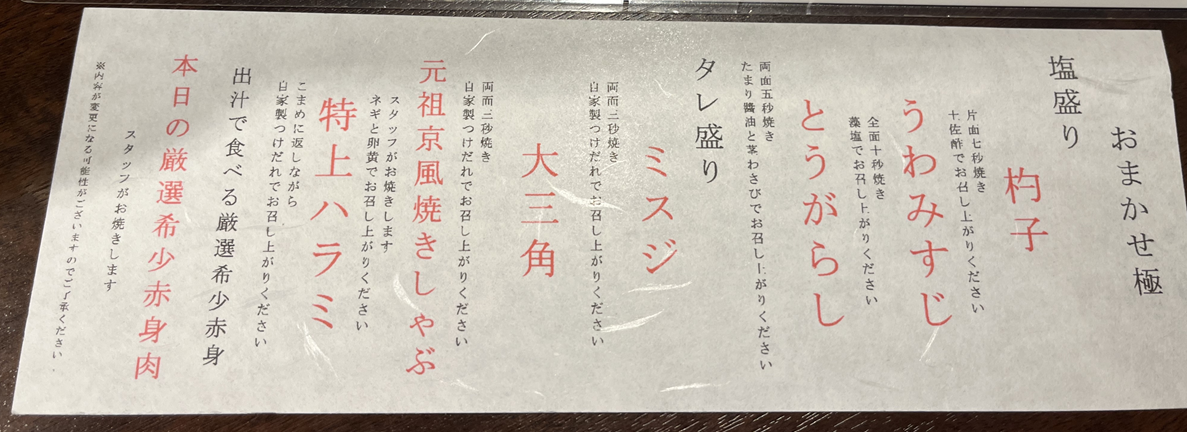 おまかせ極
塩盛り
杓子
片面七秒焼き
土佐酢でお召し上がりください
うわみすじ
全面十秒焼き
藻塩でお召し上がりください
とうがらし
両面五秒焼き
たまり醬油と茎わさびでお召し上がりください
タレ盛り
ミスジ
両面三秒焼き
自家製つけだれでお召し上がりください
大三角
両面三秒焼き
自家製つけだれでお召し上がりください
元祖京風焼きしゃぶ
スタッフがお焼きします
ネギと卵黄でお召し上がりください
特上ハラミ
こまめに返しながら
自家製つけだれでお召し上がりください
出汁で食べる厳選希少赤身
本日の厳選希少赤身肉
スタッフがお焼きします
※内容が変更になる可能性がございますのでご了承ください。